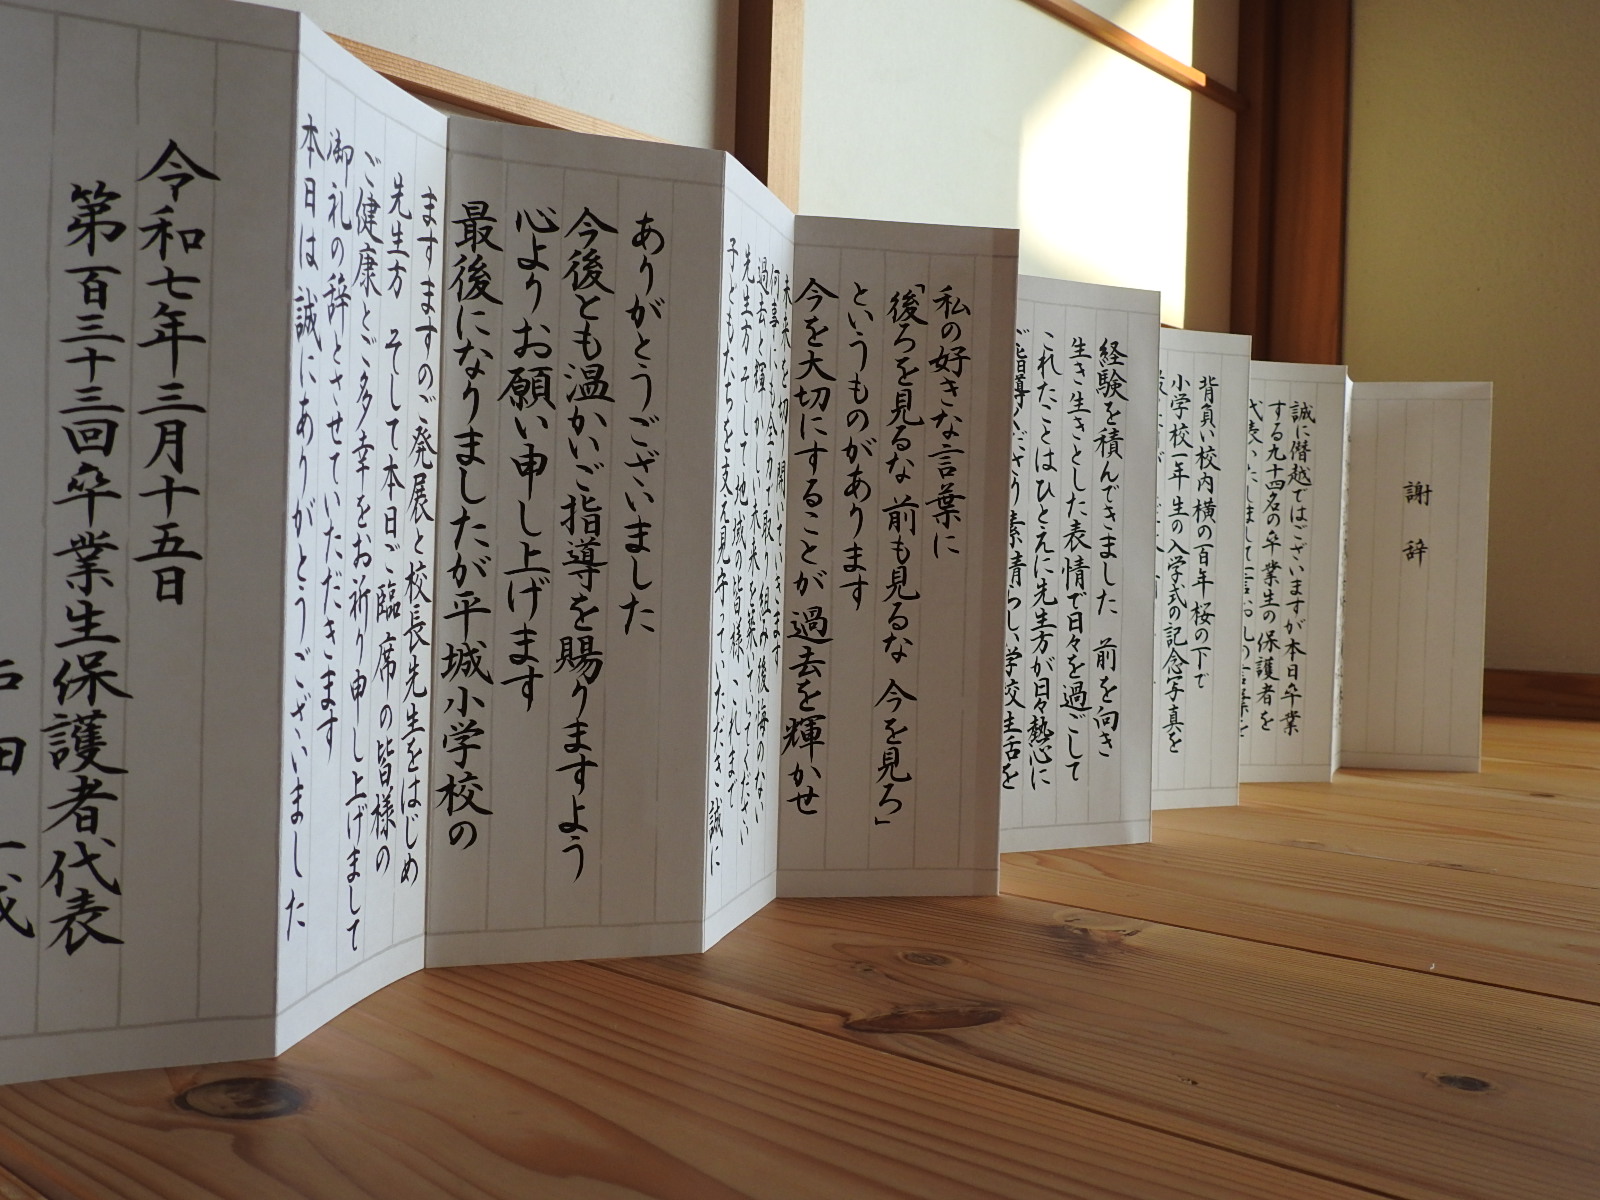 謝辞
誠に僭越ではございますが本日卒業
する九十四名の卒業生の保護者を
代表いたしまして一言お礼の言葉を
背負い校内横の百年桜の下で
小学校一年生の入学式の記念写真を
経験を積んできました 前を向き
生き生きとした表情で日々を過ごして
これたことはひとえに先生方が日々熱心に
ご指導くださり素晴らしい学校生活を
私の好きな言葉に
「後ろを見るな 前も見るな 今を見ろ」
というものがあります
今を大切にすることが過去を輝かせ
未来を切り開いていきます
何事にも全力で取り組み後悔のない
過去と輝かしい未来を築いていってください
先生方 そして地域の皆様 これまで
子どもたちを支え見守っていただき誠に
ありがとうございました
今後とも温かいご指導を賜りますよう
心よりお願い申し上げます
最後になりましたが平城小学校の
ますますのご発展と校長先生をはじめ
先生方 そして本日ご臨席の皆様の
ご健康とご多幸をお祈り申し上げまして
御礼の辞とさせていただきます
本日は誠にありがとうございました
令和七年三月十五日
第百三十三回卒業生保護者代表